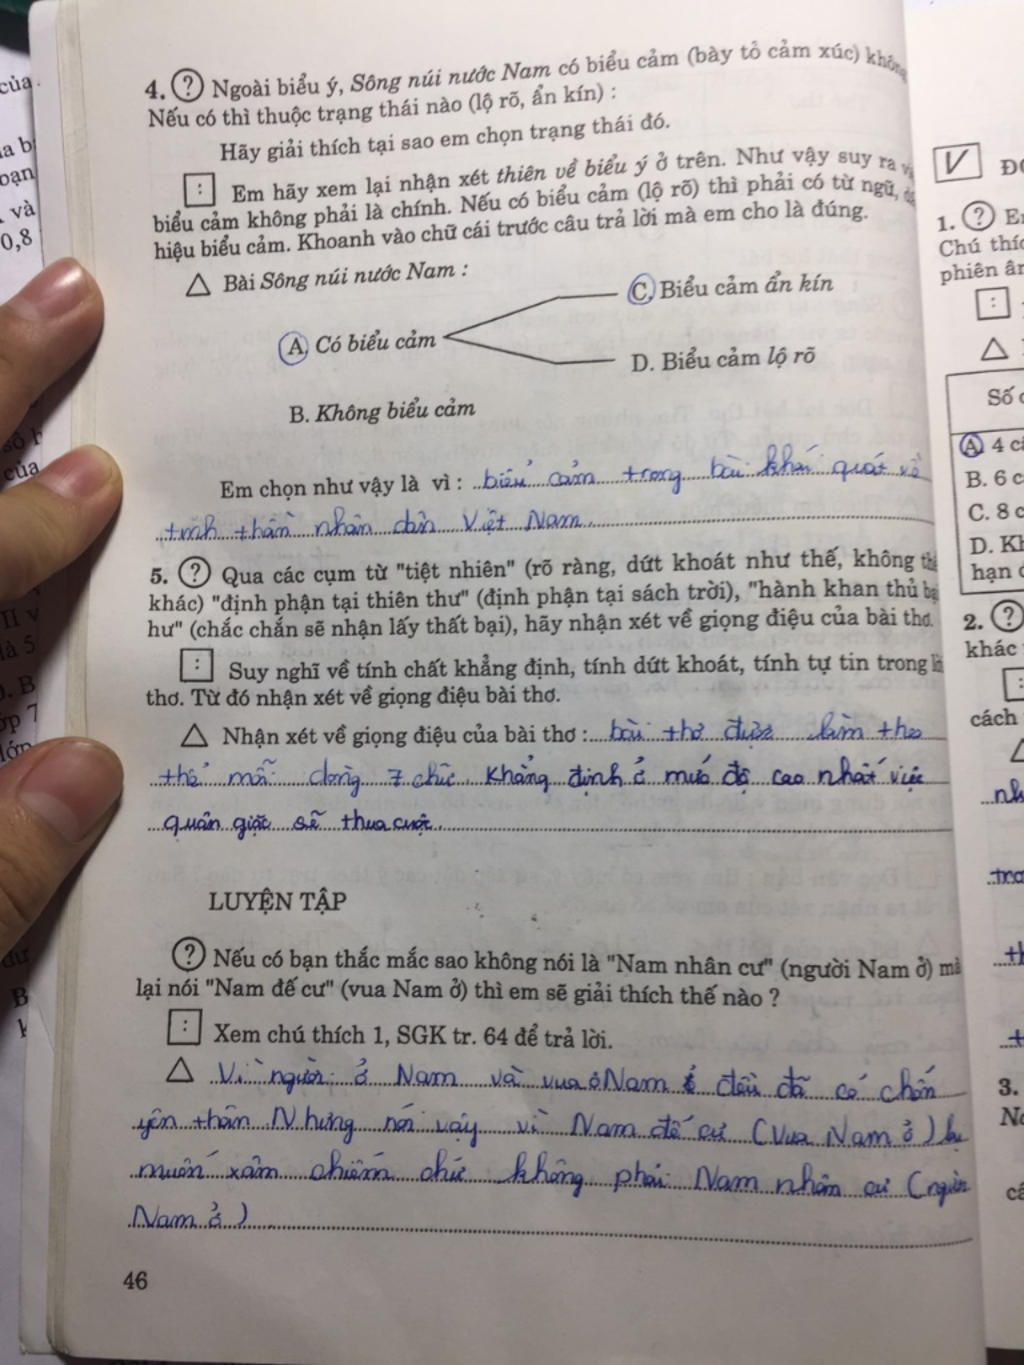 4. ? Ngoài biểu ý, Sông núi nước Nam có biểu cảm (bày tỏ cảm xúc) không
Nếu có thì thuộc trạng thái nào (lộ rõ, ẩn kín) :
Hãy giải thích tại sao em chọn trạng thái đó.
: Em hãy xem lại nhận xét thiên về biểu ý ở trên. Như vậy suy ra
biểu cảm không phải là chính. Nếu có biểu cảm (lộ rõ) thì phải có từ ngữ,
hiệu biểu cảm. Khoanh vào chữ cái trước câu trả lời mà em cho là đúng.
△ Bài Sông núi nước Nam :
C. Biểu cảm ẩn kín
A. Có biểu cảm
D. Biểu cảm lộ rõ
B. Không biểu cảm
Em chọn như vậy là vì : biểu cảm trong bài khái quát về
tinh thần nhân dân Việt Nam.
5. ? Qua các cụm từ "tiệt nhiên" (rõ ràng, dứt khoát như thế, không thể
khác) "định phận tại thiên thư" (định phận tại sách trời), "hành khan thủ bại
hư" (chắc chắn sẽ nhận lấy thất bại), hãy nhận xét về giọng điệu của bài thơ.
: Suy nghĩ về tính chất khẳng định, tính dứt khoát, tính tự tin trong
thơ. Từ đó nhận xét về giọng điệu bài thơ.
△ Nhận xét về giọng điệu của bài thơ : bài thơ được làm theo
thể mỗi dòng 7 chữ khẳng định ở mức độ cao nhất việc
quân giặc sẽ thua cuộc.
LUYỆN TẬP
? Nếu có bạn thắc mắc sao không nói là "Nam nhân cư" (người Nam ở) mà
lại nói "Nam đế cư" (vua Nam ở) thì em sẽ giải thích thế nào ?
: Xem chú thích 1, SGK tr. 64 để trả lời.
△ Vì người ở Nam và vua ở Nam đều đã có chốn
yên thân. Nhưng nói vậy vì Nam đế cư (Vua Nam ở)
muốn xâm chiếm chứ không phải Nam nhân cư (người
Nam ở)
46
của
và
0,8
của
V
1. ?
Chú thíc
phiên âm
:
△
Số
A. 4
B. 6 c
C. 8 c
D. Kh
hạn
2. ?
khác
:
cách
3.